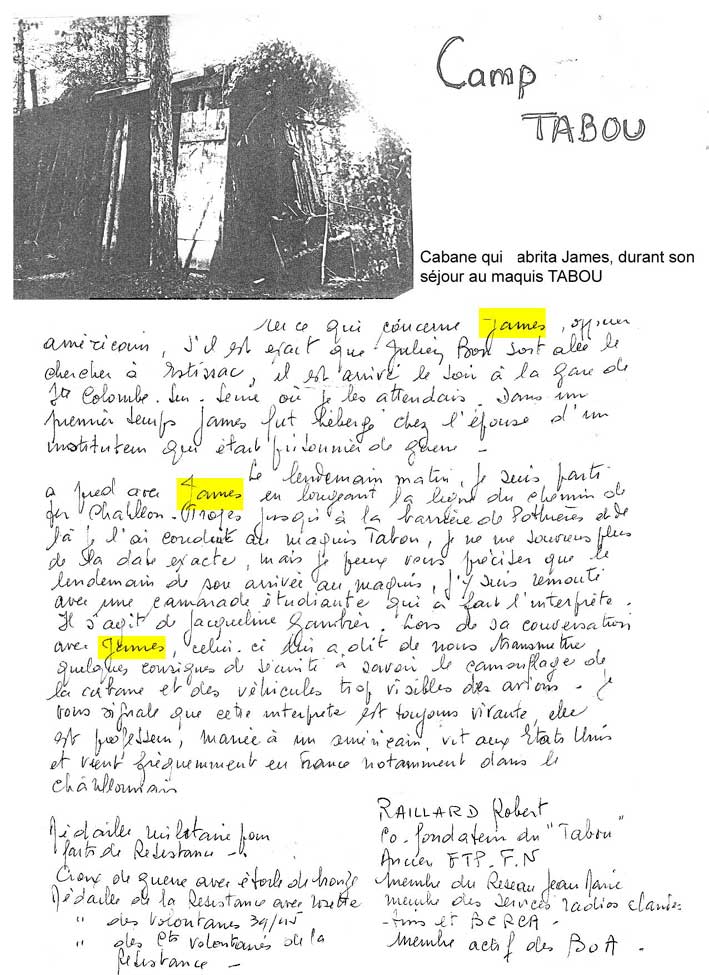 Camp
TABOU
Cabane qui abrita James, durant son
séjour au maquis TABOU
ce qui concerne James, officier
américain, s'il est exact que Julien Bon soit allé le
chercher à Estissac, il est arrivé le soir à la gare de
Ste Colombe. Sur. Seine où je les attendais. Dans un
premier temps James fut hébergé chez l'épouse d'un
instituteur qui était prisonnier de guerre -
Le lendemain matin, je suis parti
a pied avec James en longeant la ligne du chemin de
fer Chatillon. Troyes jusqu'à la barrière de Pothières et de
là je l'ai conduit au maquis Tabou, je ne me souviens plus
de la date exacte, mais je peux vous préciser que le
lendemain de son arrivée au maquis, j'y suis remonté
avec une camarade étudiante qui a fait l'interprète.
Il s'agit de Jacqueline Gambier. Lors de sa conversation
avec James, celui-ci lui a dit de nous transmettre
quelques consignes de sécurité à savoir le camouflage de
la cabane et des véhicules trop visibles des avions - Je
vous signale que cette interprète est toujours vivante, elle
est professeur, mariée à un américain, vit aux Etats Unis
et vient fréquemment en France notamment dans le
châtillonnais
RAILLARD Robert
Co-fondateur du "Tabou"
Ancien FTP.F.N
membre du Reseau Jean Marie
membre des services radios clandes-
-tins et BCRA -
membre actif des BOA -
Médaille militaire pour
faits de Résistance -
Croix de guerre avec étoile de bronze
Médailles de la Resistance avec rosette
" des Volontaires 39/45
" des Cts Volontaires de la
Résistance -